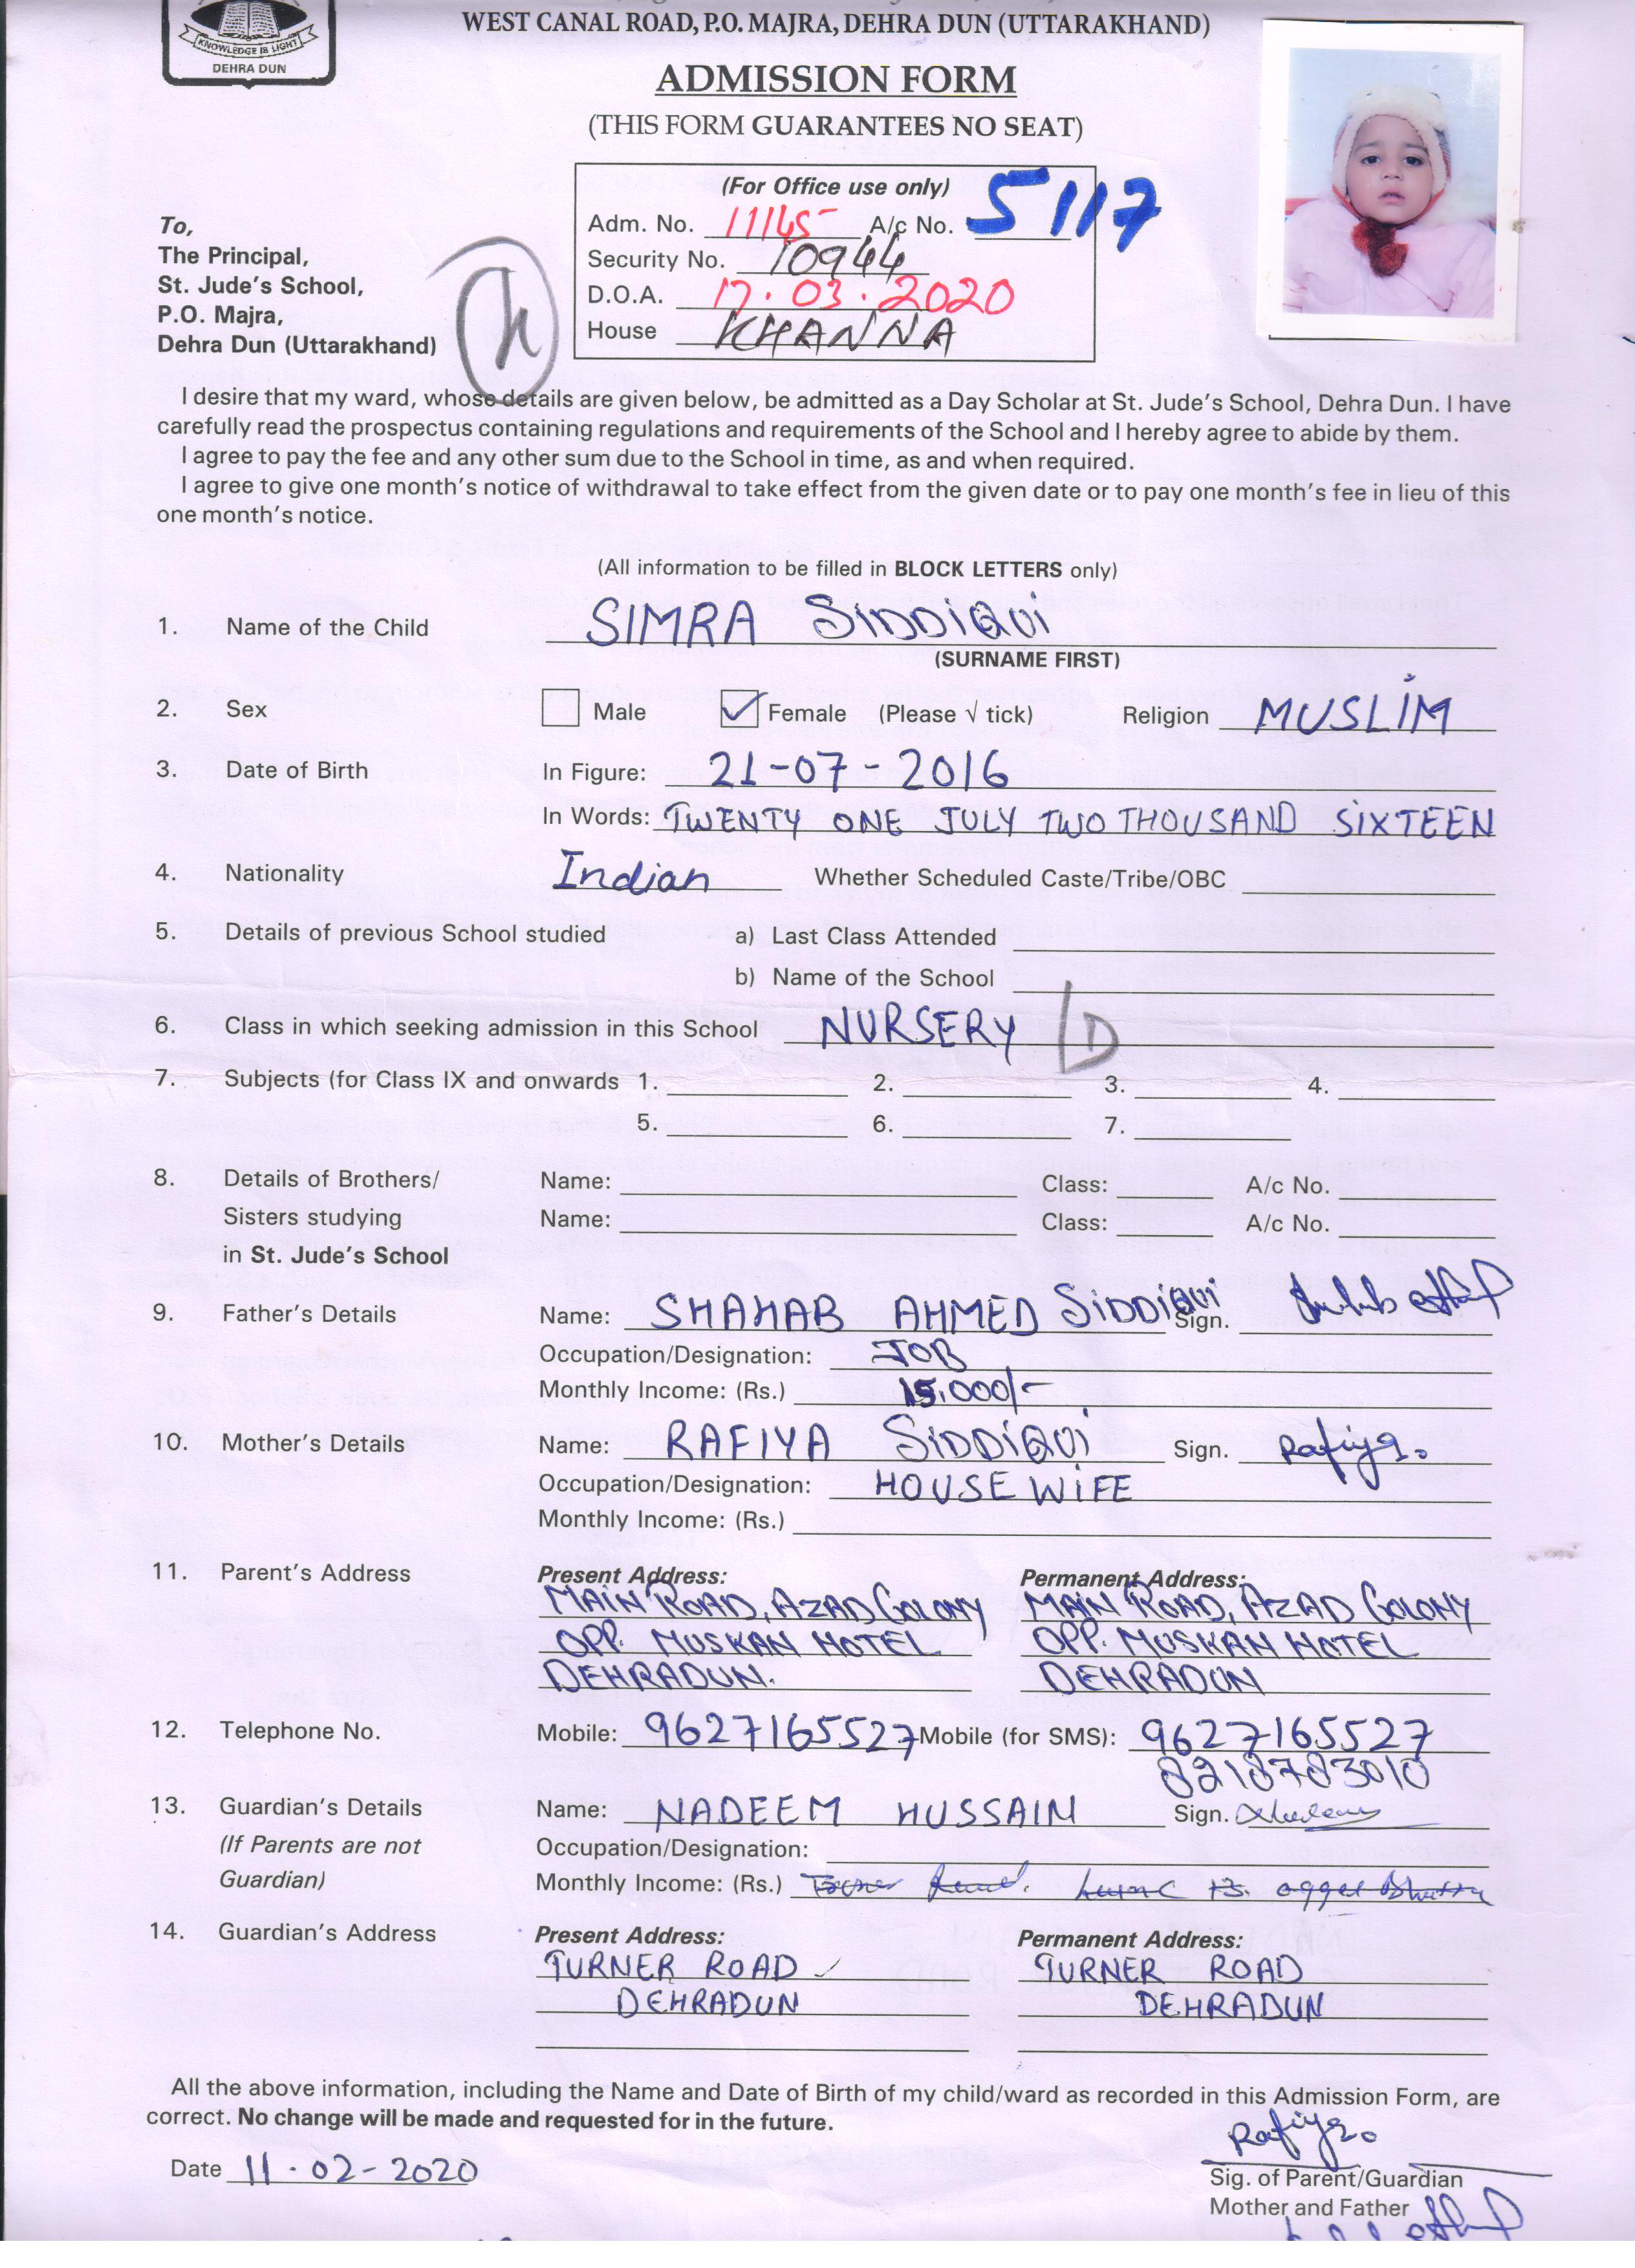 KNOWLEDGE IS LIGHT
DEHRA DUN
WEST CANAL ROAD, P.O. MAJRA, DEHRA DUN (UTTARAKHAND)
ADMISSION FORM
(THIS FORM GUARANTEES NO SEAT)
(For Office use only)
Adm. No. 11145 A/c No. 5117
Security No. 10944
D.O.A. 17.03.2020
House KHANNA
To,
The Principal,
St. Jude's School,
P.O. Majra,
Dehra Dun (Uttarakhand)
I desire that my ward, whose details are given below, be admitted as a Day Scholar at St. Jude's School, Dehra Dun. I have
carefully read the prospectus containing regulations and requirements of the School and I hereby agree to abide by them.
I agree to pay the fee and any other sum due to the School in time, as and when required.
I agree to give one month's notice of withdrawal to take effect from the given date or to pay one month's fee in lieu of this
one month's notice.
(All information to be filled in BLOCK LETTERS only)
1. Name of the Child SIMRA SIDDIQUI
(SURNAME FIRST)
2. Sex Male ✓ Female (Please √ tick) Religion MUSLIM
3. Date of Birth In Figure: 21-07-2016
In Words: TWENTY ONE JULY TWO THOUSAND SIXTEEN
4. Nationality Indian Whether Scheduled Caste/Tribe/OBC
5. Details of previous School studied a) Last Class Attended
b) Name of the School
6. Class in which seeking admission in this School NURSERY D
7. Subjects (for Class IX and onwards 1. 2. 3. 4.
5. 6. 7.
8. Details of Brothers/ Name: Class: A/c No.
Sisters studying Name: Class: A/c No.
in St. Jude's School
9. Father's Details Name: SHAHAB AHMED SIDDIQUI Sign.
Occupation/Designation: JOB
Monthly Income: (Rs.) 15,000/-
10. Mother's Details Name: RAFIYA SIDDIQUI Sign. Rafiya
Occupation/Designation: HOUSE WIFE
Monthly Income: (Rs.)
11. Parent's Address Present Address: Permanent Address:
MAIN ROAD, AZAD COLONY MAIN ROAD, AZAD COLONY
OPP. MUSKAN HOTEL OPP. MUSKAN HOTEL
DEHRADUN. DEHRADUN
12. Telephone No. Mobile: 9627165527 Mobile (for SMS): 9627165527
8218783010
13. Guardian's Details Name: NADEEM HUSSAIN Sign.
(If Parents are not Occupation/Designation:
Guardian) Monthly Income: (Rs.)
14. Guardian's Address Present Address: Permanent Address:
TURNER ROAD TURNER ROAD
DEHRADUN DEHRADUN
All the above information, including the Name and Date of Birth of my child/ward as recorded in this Admission Form, are
correct. No change will be made and requested for in the future.
Rafiya
Date 11-02-2020
Sig. of Parent/Guardian
Mother and Father